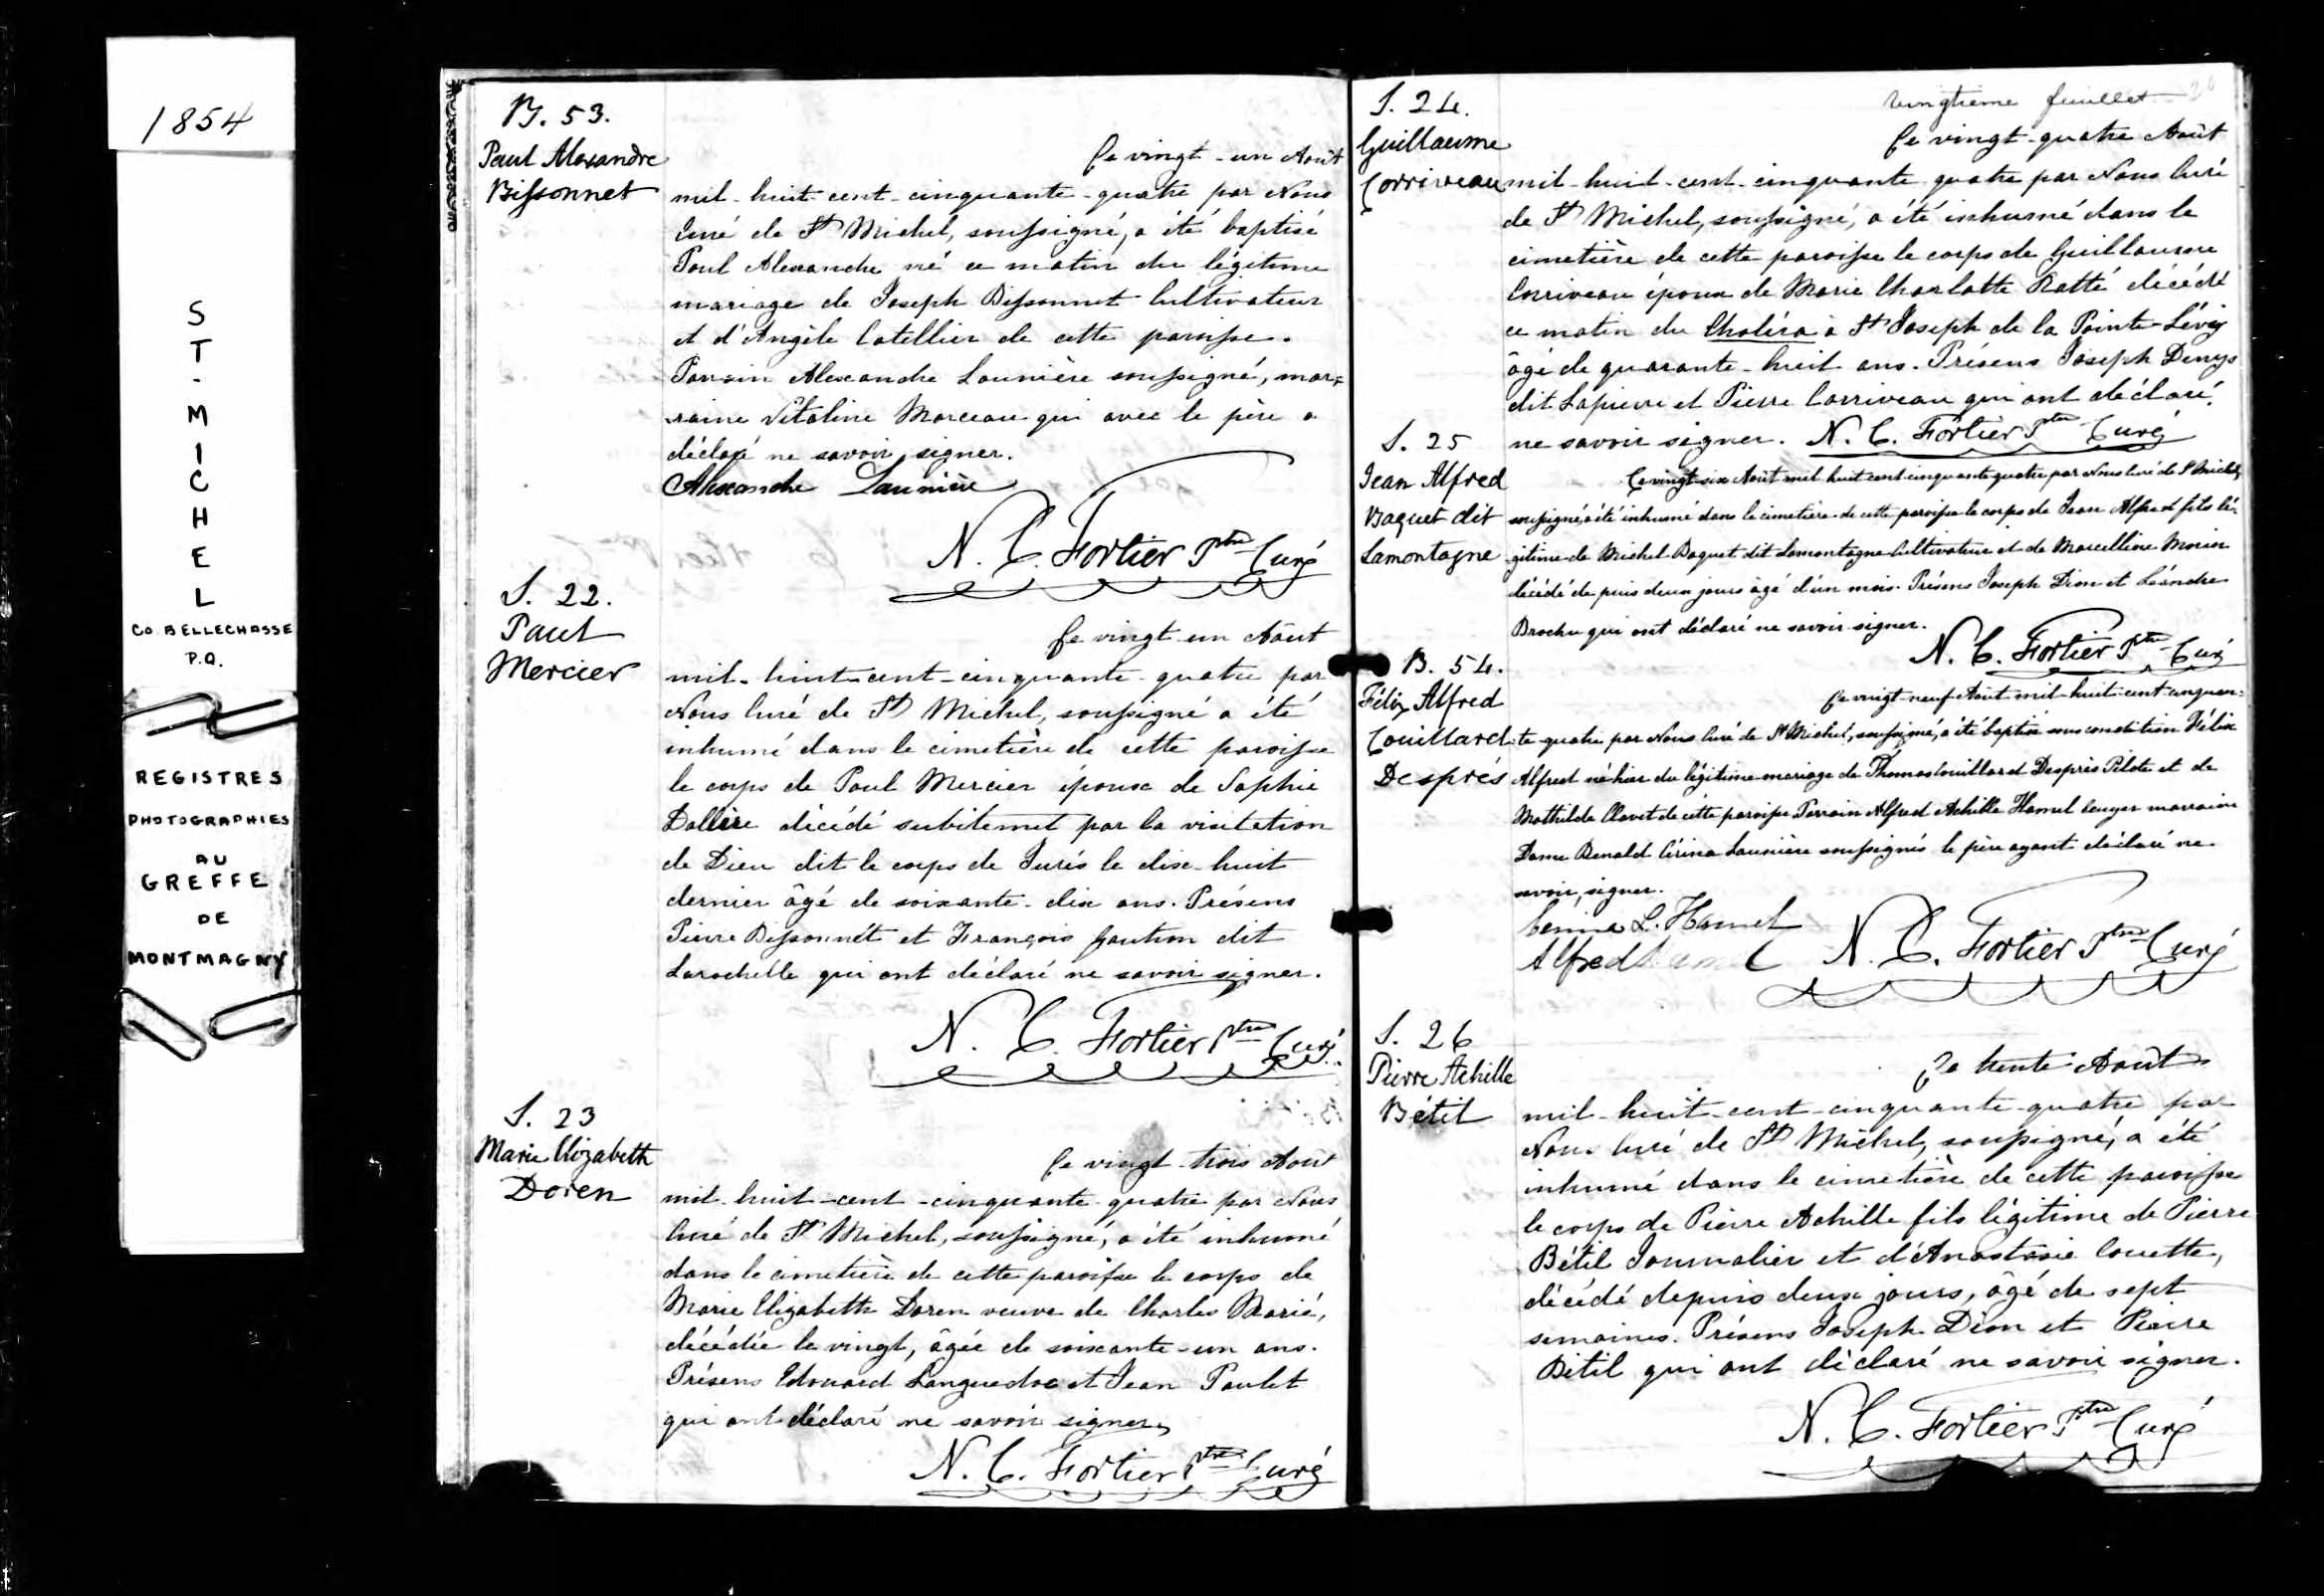 1854
ST-MICHEL
CO. BELLECHASSE
P.Q.
REGISTRES
PHOTOGRAPHIES
AU
GREFFE
DE
MONTMAGNY
B. 53.
Paul Alexandre
Bissonnet
Ce vingt-un Août
mil-huit-cent-cinquante-quatre par Nous
Curé de St Michel, soussigné, a été baptisé
Paul Alexandre né ce matin du légitime
mariage de Joseph Bissonnet Cultivateur
et d'Angèle Catellier de cette paroisse.
Parrain Alexandre Launière soussigné, mar=
raine Vitaline Marceau qui avec le père a
déclaré ne savoir signer.
Alexandre Launière
N. C. Fortier Ptre Curé
S. 22.
Paul
Mercier
Ce vingt-un Août
mil-huit-cent-cinquante-quatre par
Nous Curé de St Michel, soussigné a été
inhumé dans le cimetière de cette paroisse
le corps de Paul Mercier époux de Sophie
Dallère décédé subitement par la visitation
de Dieu dit le corps de Jurés le dix-huit
dernier âgé de soixante-dix ans. Présens
Pierre Bissonnet et François Gautron dit
Larochelle qui ont déclaré ne savoir signer.
N. C. Fortier Ptre Curé.
S. 23
Marie Elizabeth
Doren
Ce vingt-trois Août
mil-huit-cent-cinquante-quatre par Nous
Curé de St Michel, soussigné, a été inhumé
dans le cimetière de cette paroisse le corps de
Marie Elizabeth Doren veuve de Charles Marié,
décédée le vingt, âgée de soixante-un ans.
Présens Edouard Languedoc et Jean Paulet
qui ont déclaré ne savoir signer.
N. C. Fortier Ptre Curé
vingtième feuillet 20
S. 24.
Guillaume
Corriveau
Ce vingt-quatre Août
mil-huit-cent-cinquante quatre par Nous Curé
de St Michel, soussigné, a été inhumé dans le
cimetière de cette paroisse le corps de Guillaume
Corriveau époux de Marie Charlotte Ratté décédé
ce matin du Choléra à St Joseph de la Pointe-Lévy
âgé de quarante-huit ans. Présens Joseph Denys
dit Lapierre et Pierre Corriveau qui ont déclaré
ne savoir signer. N. C. Fortier Ptre Curé
S. 25
Jean Alfred
Baquet dit
Lamontagne
Ce vingt-six Août mil huit cent cinquante quatre par Nous Curé de St Michel,
soussigné, a été inhumé dans le cimetière de cette paroisse le corps de Jean Alfred fils lé-
gitime de Michel Baquet dit Lamontagne Cultivateur et de Marcelline Morin
décédé depuis deux jours âgé d'un mois. Présens Joseph Dion et Léandre
Brochu qui ont déclaré ne savoir signer.
N. C. Fortier Ptre Curé
B. 54.
Félix Alfred
Couillard
Després
Ce vingt-neuf Août mil-huit-cent-cinquan=
te quatre par Nous Curé de St Michel, soussigné, a été baptisé sous condition Félix
Alfred né hier du légitime mariage de Thomas Couillard Després Pilote et de
Mathilde Clavet de cette paroisse Parrain Alfred Achille Hamel Ecuyer marraine
Dame Cérina Launière soussignés le père ayant déclaré ne
savoir signer.
L. Hamel
Alfred Hamel N. C. Fortier Ptre Curé
S. 26
Pierre Achille
Bétil
Ce trente Août
mil-huit-cent-cinquante-quatre par
Nous Curé de St Michel, soussigné, a été
inhumé dans le cimetière de cette paroisse
le corps de Pierre Achille fils légitime de Pierre
Bétil Journalier et d'Anastasie Couette,
décédé depuis deux jours, âgé de sept
semaines. Présens Joseph Dion et Pierre
Bétil qui ont déclaré ne savoir signer.
N. C. Fortier Ptre Curé